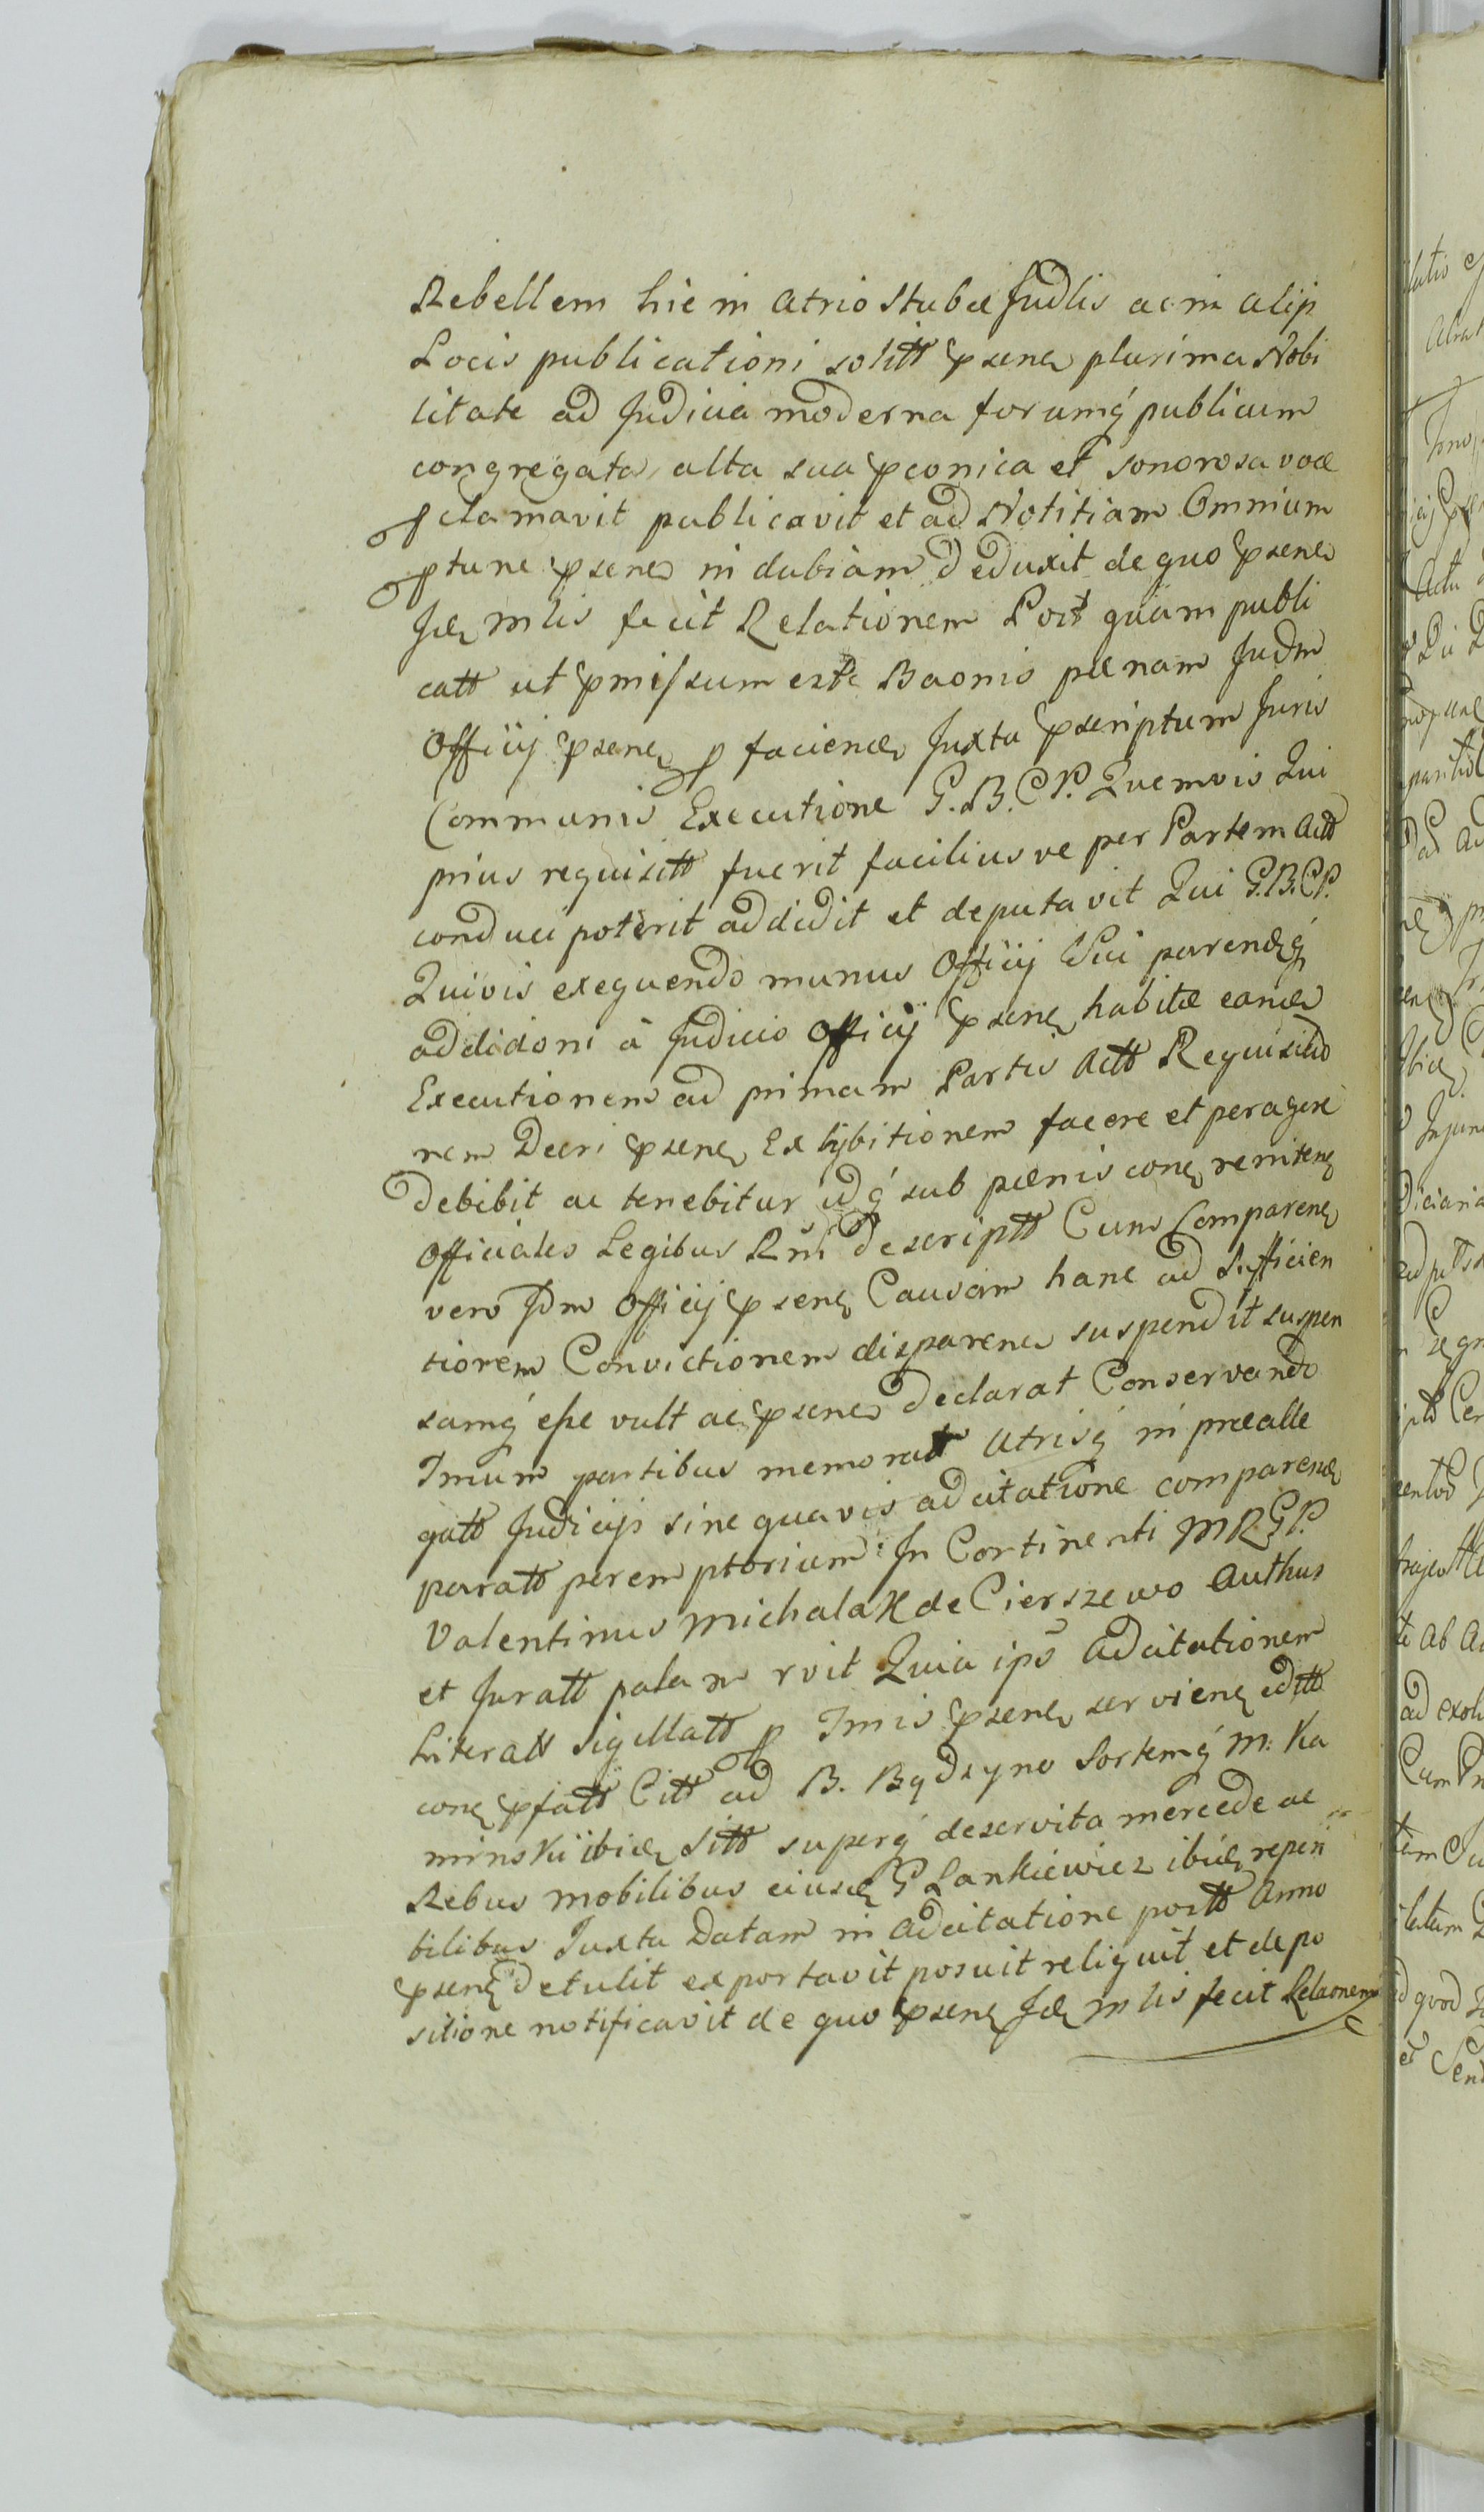 Rebellem hic in Atrio Stubæ Judlis ac in alijs
Locis publicationi solitt psene plurima Nobi
litate ad Judicia moderna forumq́ publicum
congregata, alta sua pconica et sonorosa voce
pclamavit publicavit et ad Notitiam Omnium
ptune psene in dubiam deduxit de quo psene
Jde mlis fecit Relationem Post quam publi
catt ut pmissum est Baonis pœnam Judm
Officij psene p faciende Juxta pscriptum Juris
Communis Executione G.B.C.P. Quemvis Qui
prius requisitt fuerit facilius ve per Partem Actt
conduci poterit addidit et deputavit Qui G.B.C.P.
Quivis exequendo munus Officij Sui parendq́
addidoni à Judicio Officij psene habitæ eande
Executionem ad primam Partis Actt Requisitio
nem Decri psene Exhybitionem facere et peragere
debibit ac tenebitur idq́ sub pœnis cone renitene
Officiales Legibus Rni descriptt Cum Comparene
vero Jdm Officij psene Causam hanc ad Sufficien
tiorem Convictionem disparene suspendit suspen
samq́ esse vult ac psene declarat Conservando
Tmum partibus memoratt Utrisq́ in præalle
gatt Judicijs sine quavis adcitatione comparende
paratt peremptorium. In Continenti MRGP.
Valentinus Michalak de Cierszewo Authus
et Juratt palam rvit Quia ips Adcitationem
Literatt Sigillatt p Tmis psene serviene edttt
cone pfatt Citt ad B. Bydzyno Sortemq́ M: Ka
minskii ibide Sitt superq́ deservita mercede ac
Rebus mobilibus eiusde G Lankiewicz ibide reperi
bilibus Juxta Datam in Adcitatione postt Anno
psene detulit exportavit posuit reliquit et depo
sitione notificavit de quo psene Jde mlis fecit Relaonem